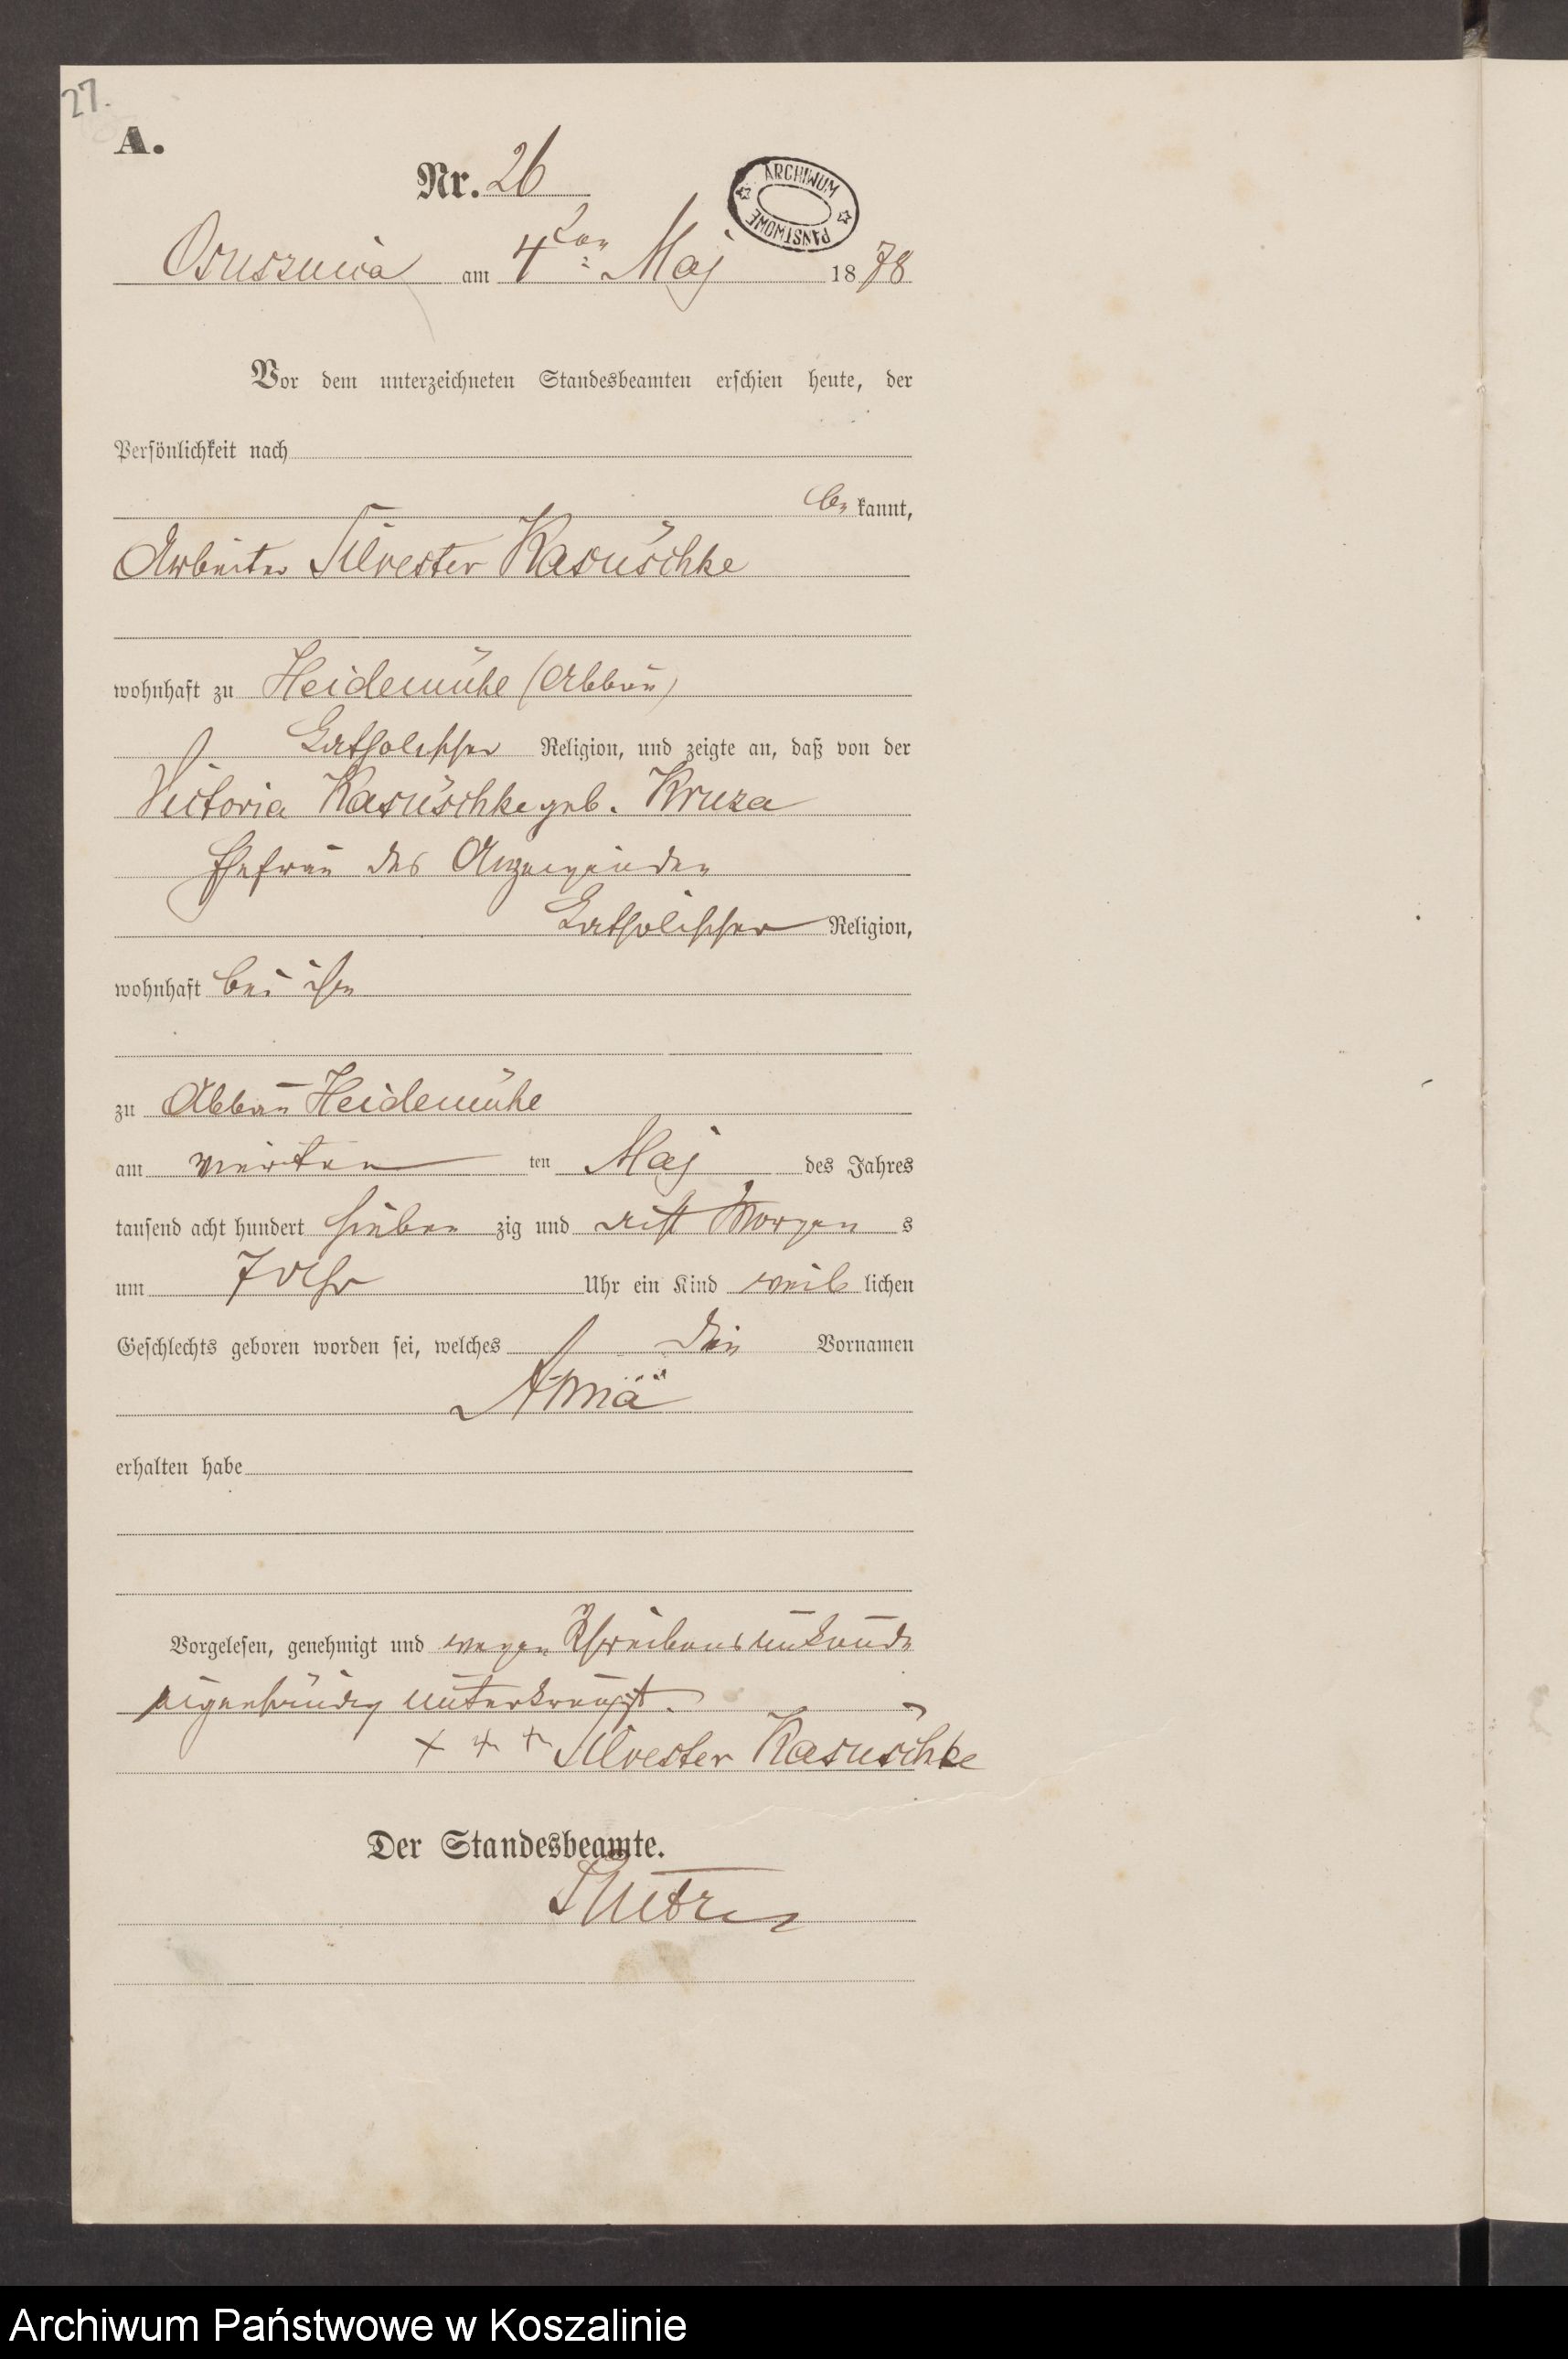 27.
A.
Nr. 26
ARCHIWUM PAŃSTWOWE
Osuszniça am 4ten Maj 1878
Vor dem unterzeichneten Standesbeamten erschien heute, der
Persönlichkeit nach
be kannt,
Arbeiter Silvester Kasuschke
wohnhaft zu Heidemühe (Abbau)
katholischer Religion, und zeigte an, daß von der
Victoria Kasuschke geb. Kruza
Ehefrau des Anzeigenden
katholischer Religion,
wohnhaft bei ihm
zu Abbau Heidemühe
am vierten ten Maj des Jahres
tausend acht hundert sieben zig und acht Morgen s
um 7 Uhr Uhr ein Kind weib lichen
Geschlechts geboren worden sei, welches den Vornamen
erhalten habe
Vorgelesen, genehmigt und wegen Schreibensunkunde
eigenhändig unterkreuzt.
+ + + Silvester Kasuschke
Der Standesbeamte.
Archiwum Państwowe w Koszalinie